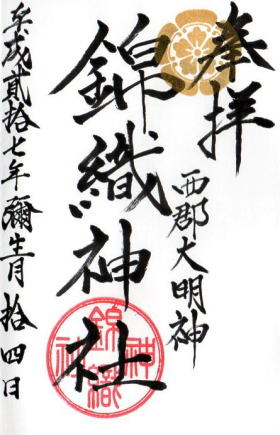 奉拝
西郡大明神
錦織神社
錦織神社
平成貳拾七年彌生月拾四日